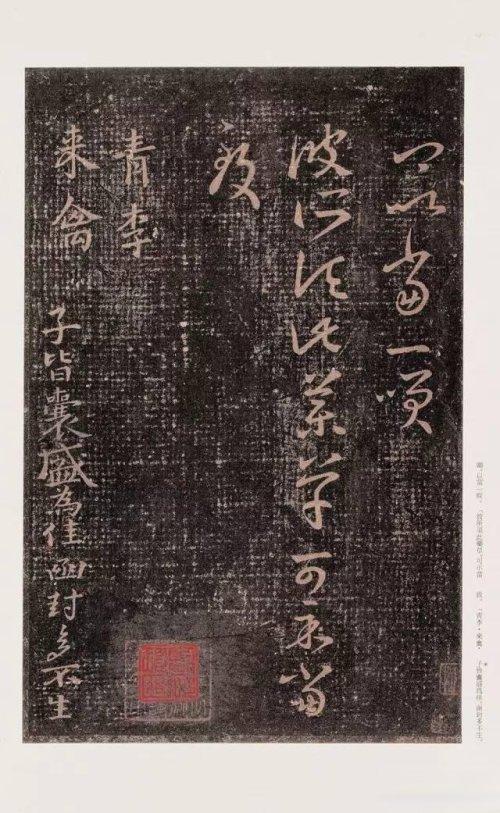 卿以當一笑
彼所須此藥草可示當
致
青李
來禽
子皆囊盛為佳函封多不生
卿,以當一笑。「彼所須此藥草,可示當 致。「青李、來禽、 子皆囊盛為佳,函封多不生。